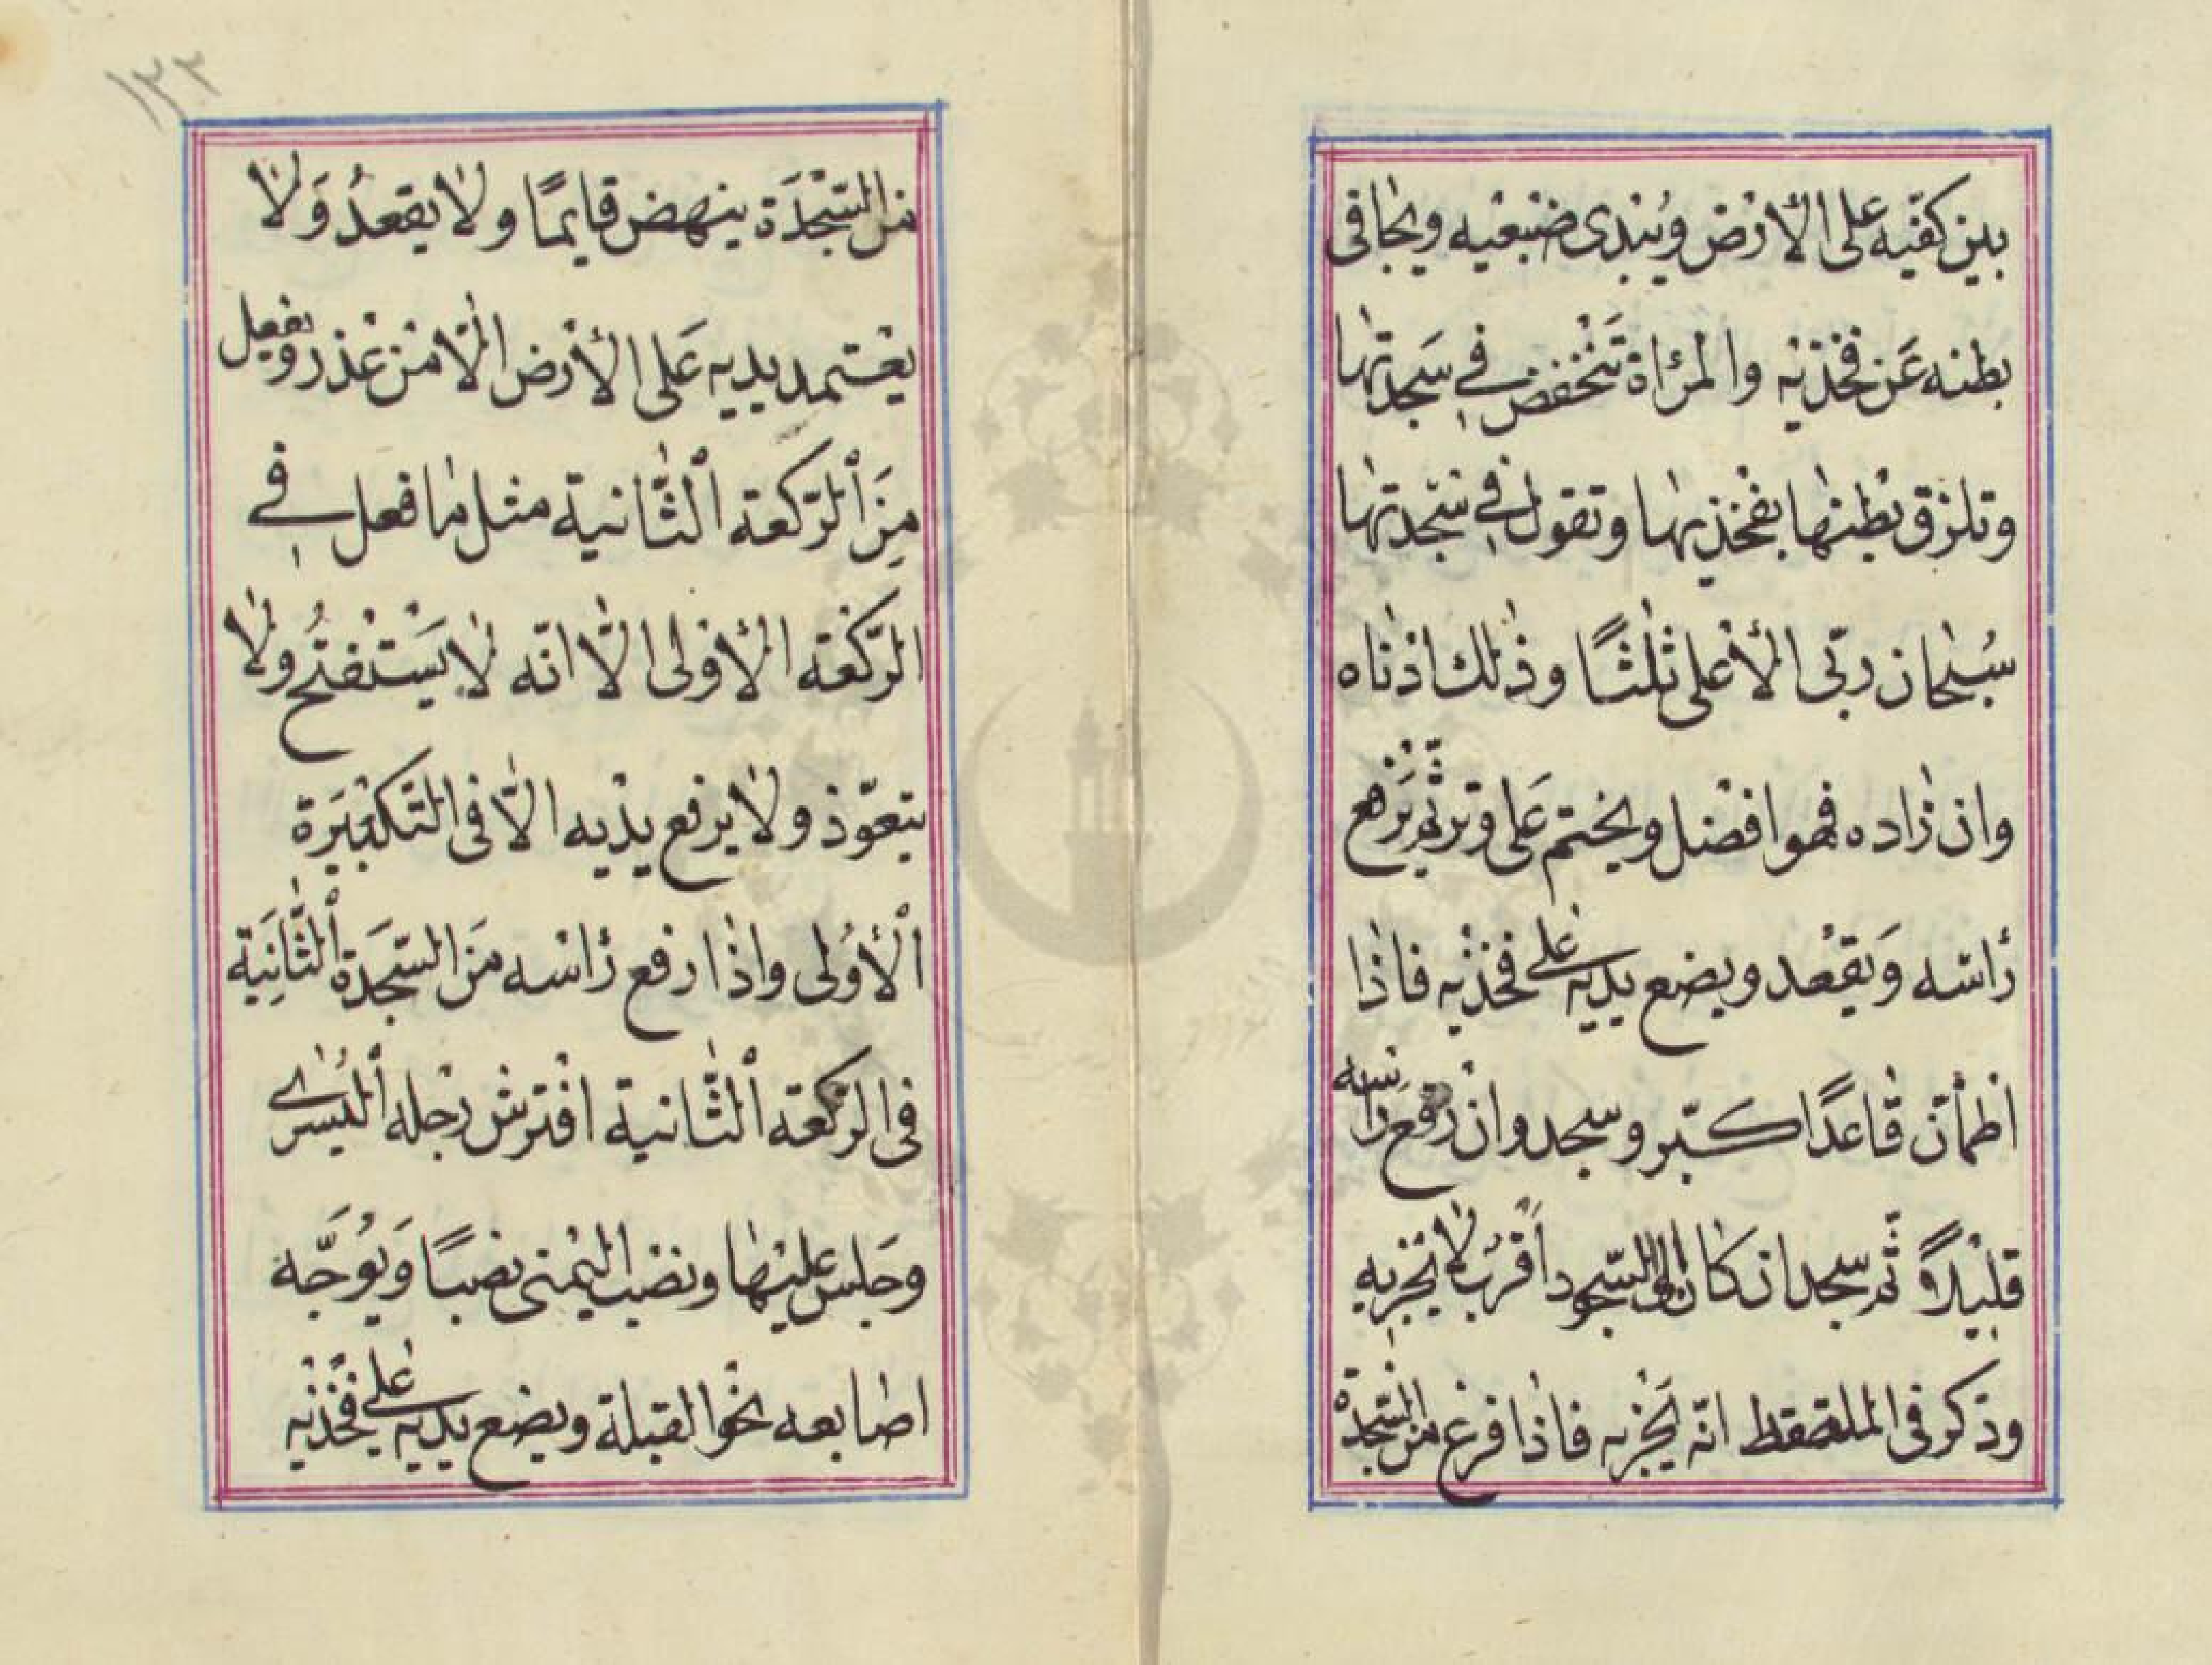 بين كفّيه على الأرض ويبدى ضبعيه ويجافى
بطنه عن فخذيه والمرأة تنخفض في سجدتها
وتلزق بطنها بفخذيها وتقول في سجدتها
سبحان ربّى الأعلى ثلثًا وذلك ادناه
وان زاده فهو افضل ويختم على وتر ثمّ يرفع
رأسه ويقعد ويضع يديه على فخذيه فاذا
اطمأنّ قاعدًا كبّر وسجد وان رفع رأسه
قليلاً ثمّ سجد ان كان الى السّجود أقرب لا يجزيه
وذكر فى الملتقط انّه يجزيه فاذا فرغ من السّجدة
من السّجدة ينهض قايمًا ولا يقعدُ وَلا
يعتمد بيديه عَلى الأرض الّا من عذر ويفعل
مِنَ الرّكعة الثّانية مثل ما فعل في
الرّكعة الأولى الّا انّه لا يَستفتحُ ولا
يتعوّذ ولا يرفع يديه الّا فى التّكبيرَة
الأُولى واذا رفع رأسه مَن السّجَدة الثّانِيَة
فى الرّكعة الثّانية افترش رجله اليُسرى
وجَلس عليها ونصب اليمنى نصبًا وَيُوَجّه
اصابعه نحو القبلة ويضع يديه على فخذيه
١٢٢